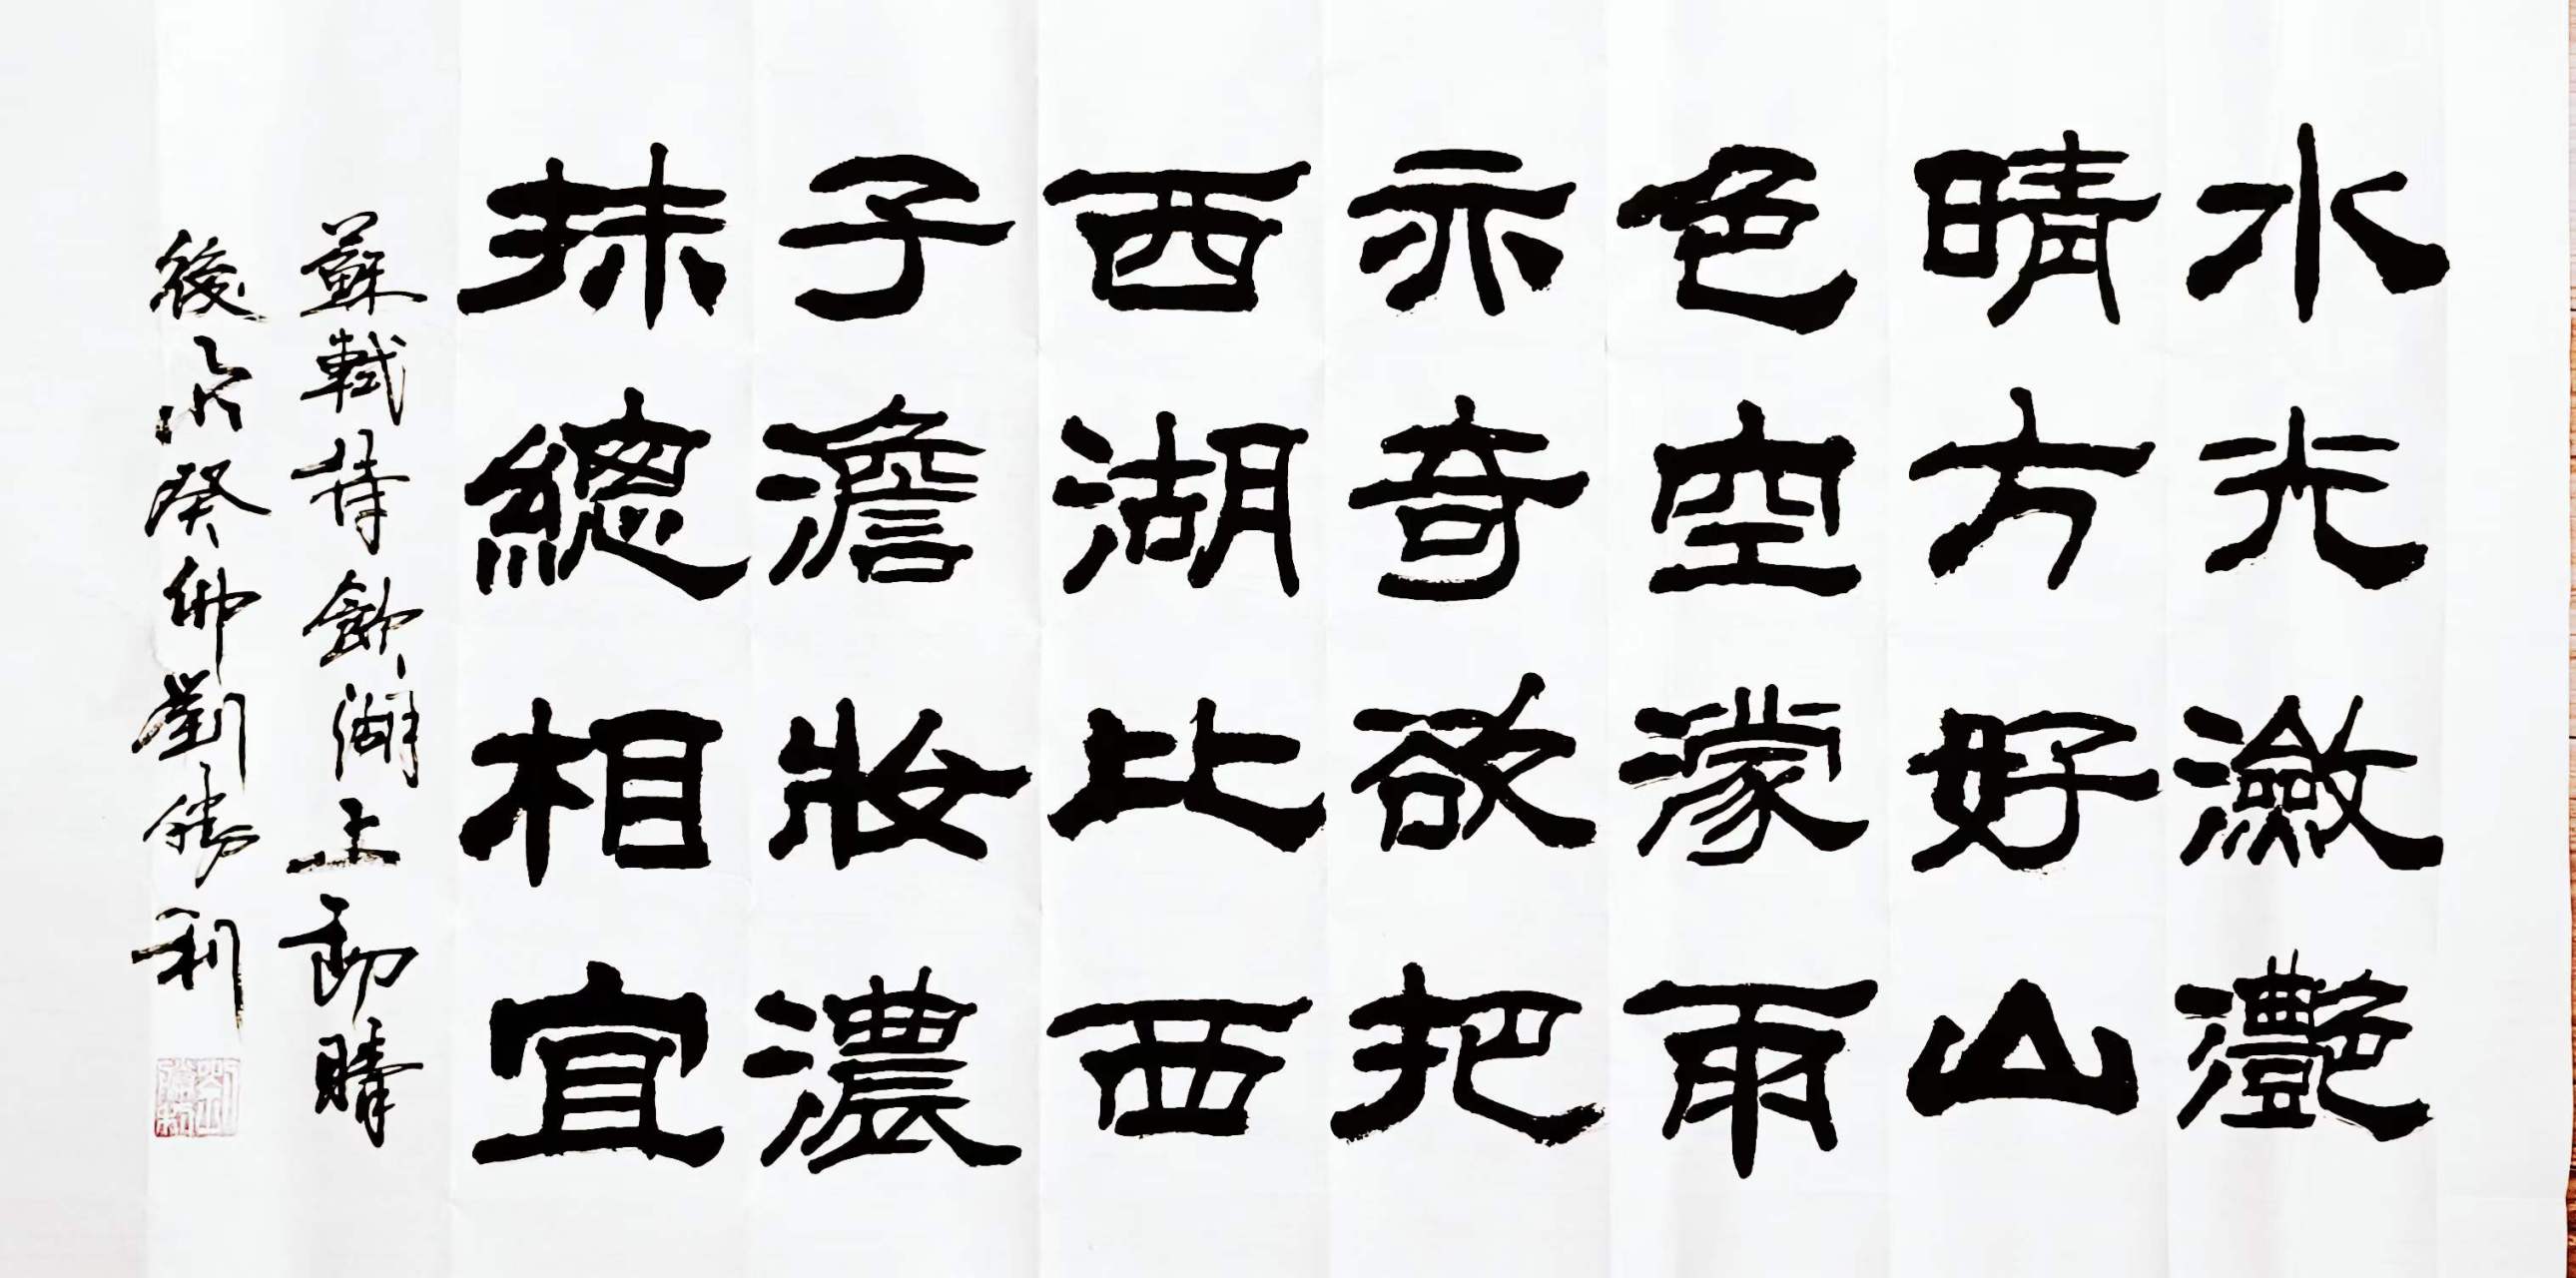 水光瀲灩
晴方好山
色空濛雨
亦奇欲把
西湖比西
子澹妝濃
抹總相宜
蘇軾詩飲湖上初晴
後雨癸卯劉勝利